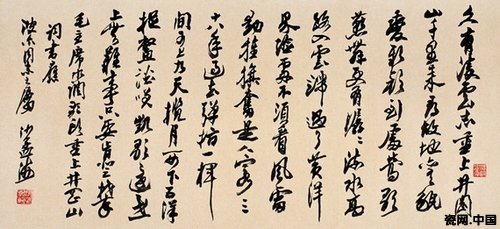 久有凌云志重上井冈
山千里来寻故地旧貌
变新颜到处莺歌
燕舞更有潺潺流水高
路入云端过了黄洋
界险处不须看风雷
动旌旗奋是人寰三
十八年过去弹指一挥
间可上九天揽月可下五洋
捉鳖谈笑凯歌还世
上无难事只要肯登攀
毛主席水调歌头重上井冈山
词书应
沙孟海
瓷网.中国